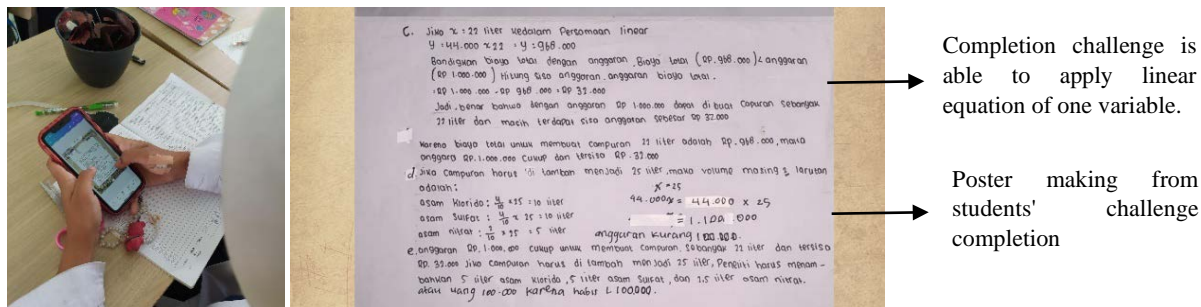 C. Jika x = 22 liter kedalam Persamaan linear
y = 44.000 x 22 = y = 968.000
Bandigkan biaya total dengan anggaran. Biaya total (RP. 968.000) < anggaran
(RP 1.000.000) Hitung sisa anggaran. anggaran biaya total.
= RP 1.000.000 - RP 968.000 = RP 32.000
Jadi, benar bahwa dengan anggaran RP 1.000.000 dapat di buat Capuran Sebangak
22 liter dan masih terdapat sisa anggaran sebesar RP 32.000
Karena biaya total untuk membuat campuran 22 liter adalah RP. 968.000, maka
anggara RP. 1.000.000 cukup dan tersisa RP. 32.000
d. Jika campuran harus di tambah menjadi 25 liter, maka volume masing2 larutan
adalah:
asam Klorida: 4/10 x 25 = 10 liter
asam Sulfat : 4/10 x 25 = 10 liter
asam nitrat : 2/10 x 25 = 5 liter
x = 25
44.000x = 44.000 x 25
= 1.100.000
anggaran kurang 100.000.
e. anggaran RP. 1.000.000 cukup untuk membuat campuran sebangak 22 liter dan tersisa
RP. 32.000 Jika campuran harus di tambah menjadi 25 liter, Peneliti harus menam-
bahkan 5 liter asam klorida, 5 liter asam Sulfat, dan 2,5 liter asam nitrat.
atau uang 100.000 karena habis 1.100.000.
Completion challenge is
able to apply linear
equation of one variable.
Poster making from
students' challenge
completion